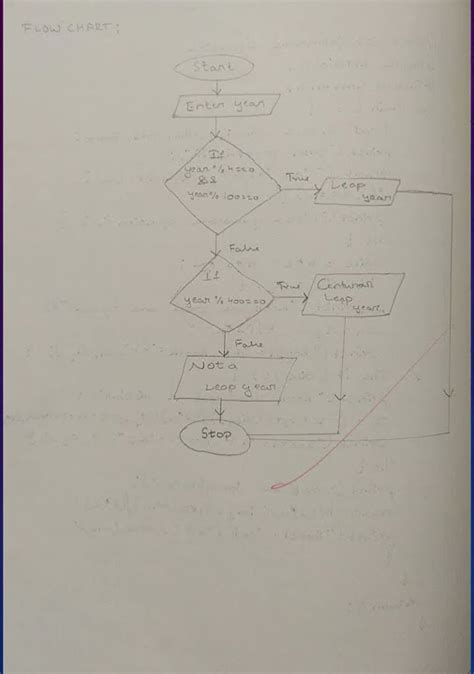 FLOW CHART:
Start
Enter year
If
year % 4==0
&&
year % 100==0
True
Leap
year
False
If
year % 400==0
True
Leap
year
False
Not a
Leap year
Stop